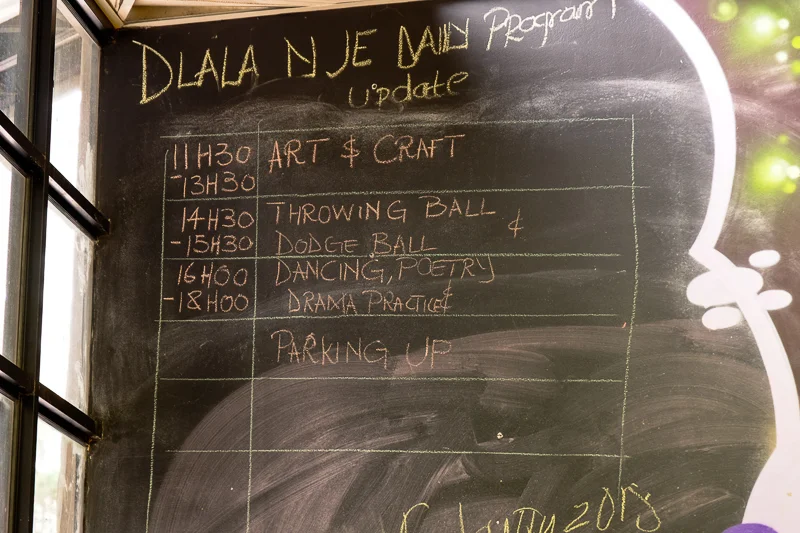 DLALA NJE DAILY Program
update
11H30 ART & CRAFT
-13H30
14H30 THROWING BALL &
-15H30 DODGE BALL
16H00 DANCING, POETRY &
-18H00 DRAMA PRACTICE
PARKING UP